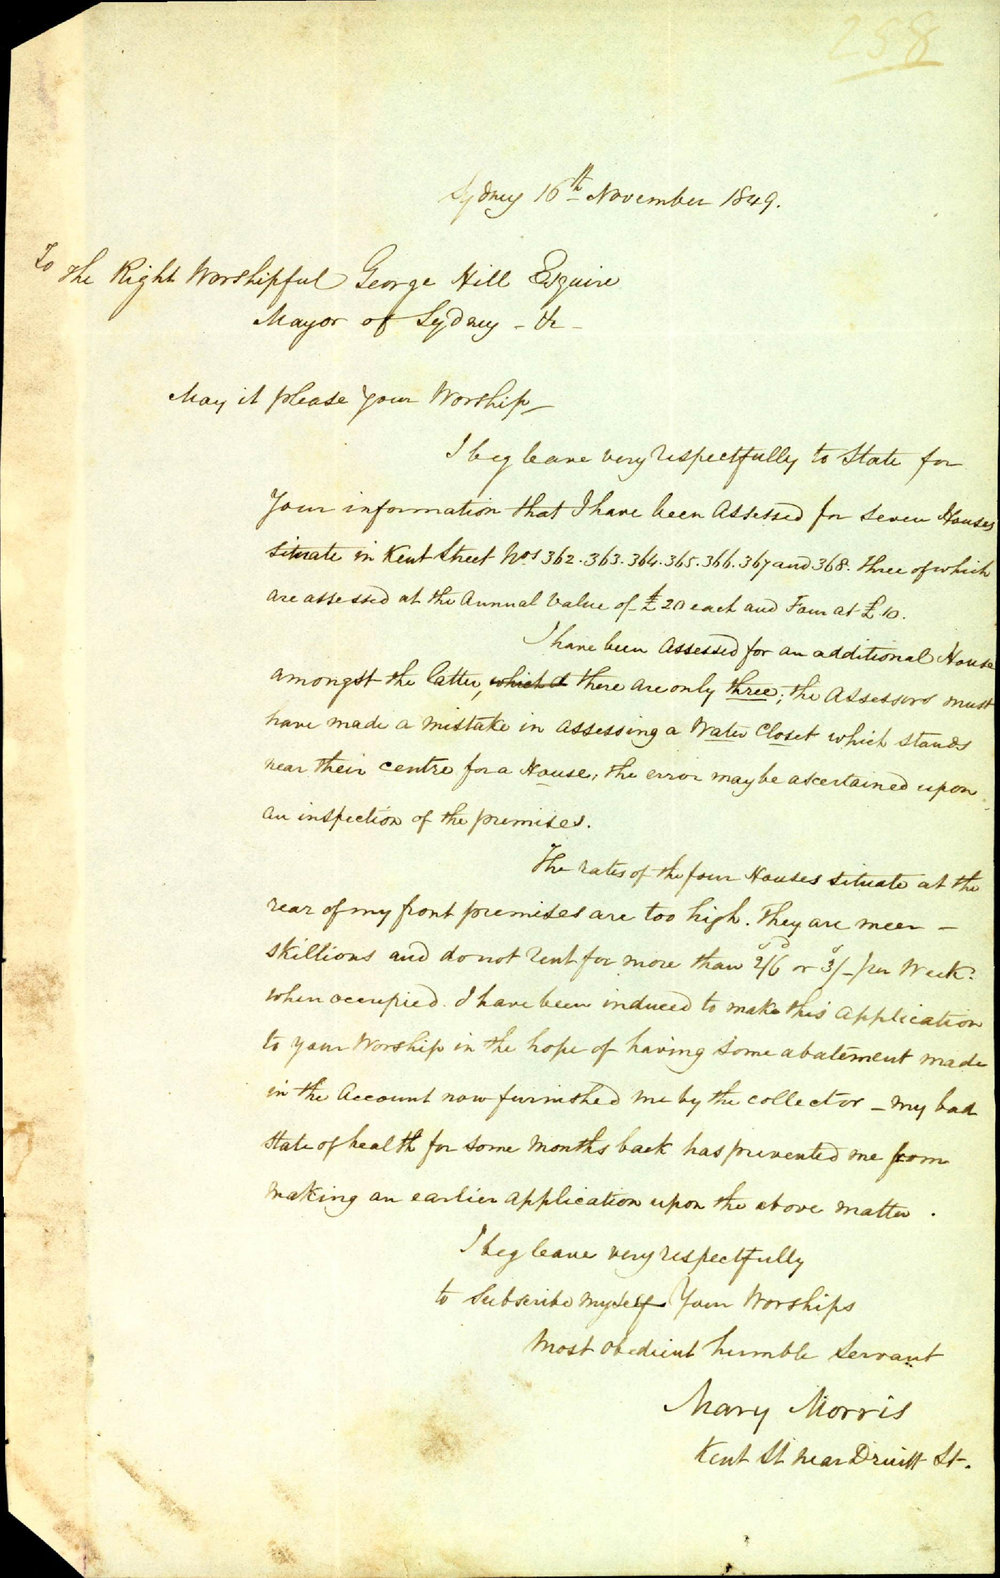 258
Sydney 16th November 1849.
To The Right Worshipful George Hill Esquire
Mayor of Sydney - &c -
May it please Your Worship
I beg leave very respectfully to State for
Your information that I have been Assessed for seven Houses
situate in Kent Street Nos 362. 363. 364. 365. 366. 367 and 368. three of which
are assessed at the Annual Value of £20 each and Four at £10.
I have been Assessed for an additional House
amongst the latter, which there are only three; the Assessors must
have made a mistake in assessing a Water Closet which stands
near their centre for a House; the error may be ascertained upon
an inspection of the premises.
The rates of the four Houses situate at the
rear of my front premises are too high. They are meer -
skillions and do not rent for more than 2/6 or 3/- per Week.
when occupied. I have been induced to make this application
to your Worship in the hope of having some abatement made
in the Account now furnished me by the collector - my bad
state of health for some months back has prevented me from
making an earlier application upon the above matter.
I beg leave very respectfully
to Subscribe myself Your Worships
Most obedient humble Servant
Mary Morris
Kent St near Druitt St.